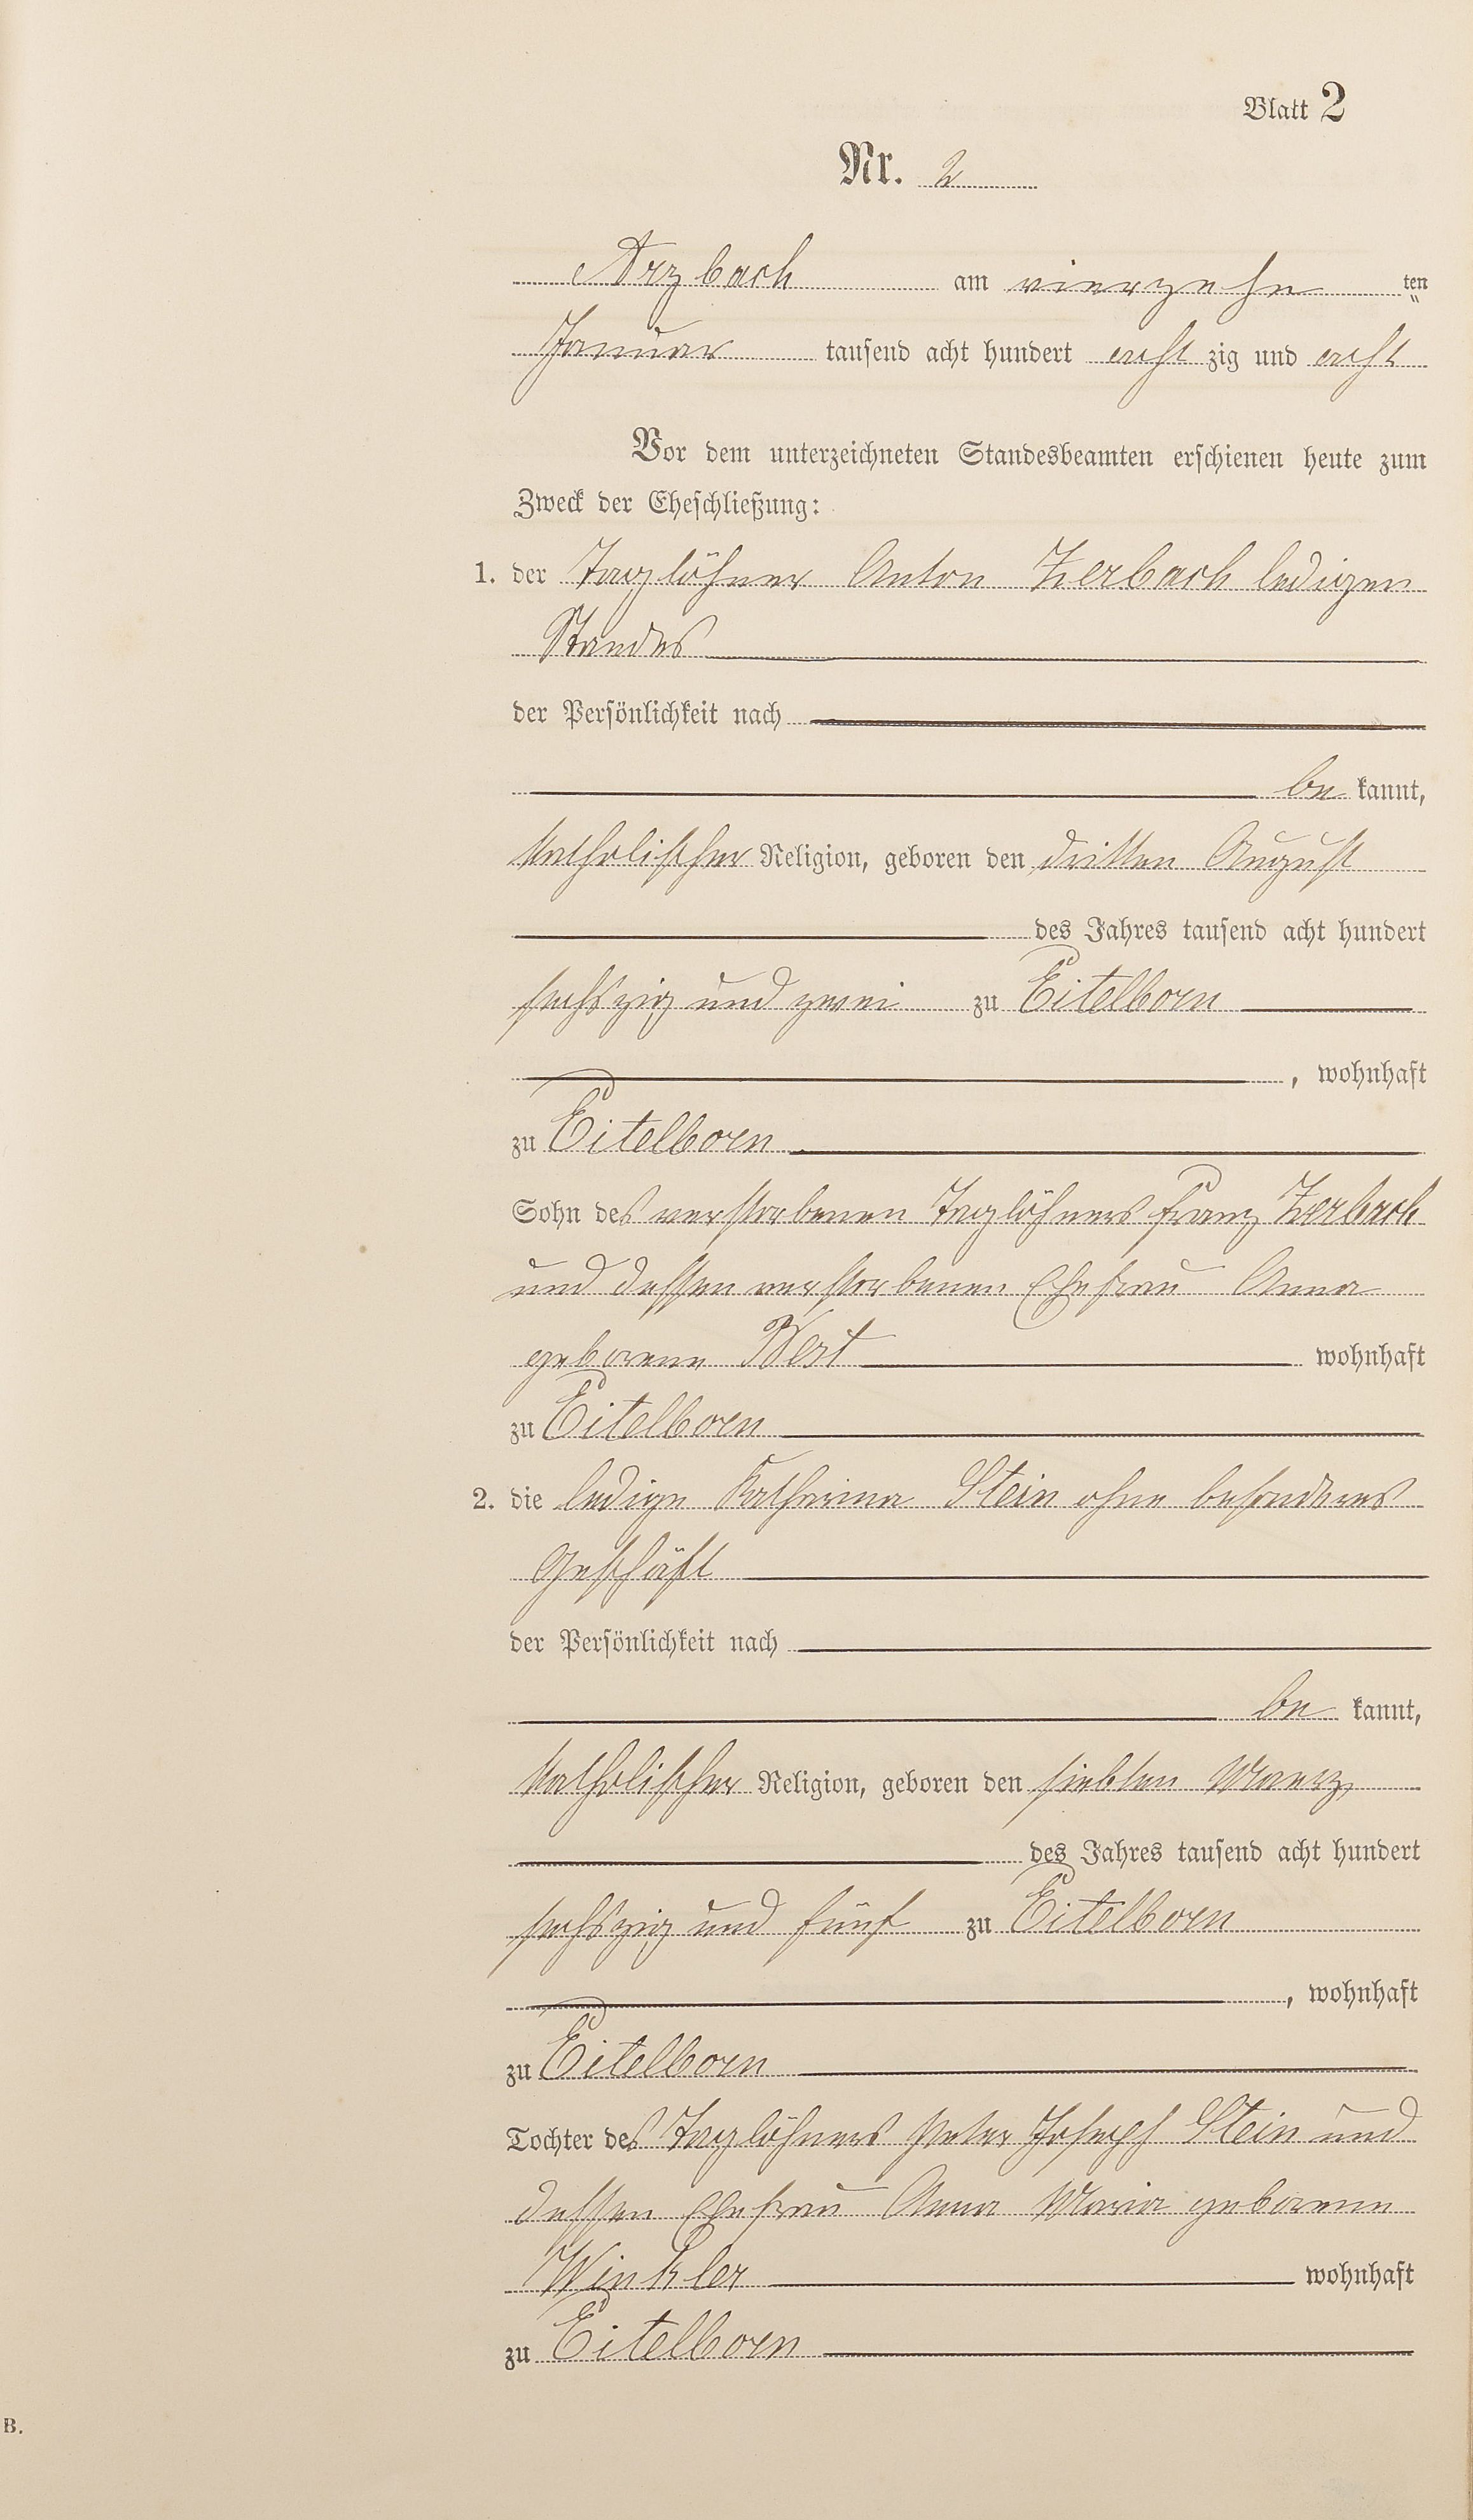 Blatt 2
Nr. 2
Arzbach am vierzehn ten
Januar tausend acht hundert acht zig und acht
Vor dem unterzeichneten Standesbeamten erschienen heute zum
Zweck der Eheschließung:
1. der Taglöhner Anton Zerbach ledigen
Standes
der Persönlichkeit nach
be kannt,
katholischer Religion, geboren den dritten August
des Jahres tausend acht hundert
sechszig und zwei zu Eitelborn
, wohnhaft
zu Eitelborn
Sohn des verstorbenen Taglöhners Franz Zerbach
und dessen verstorbenen Ehefrau Anna
geborene
wohnhaft
zu Eitelborn
2. die ledige Katharina Stein ohne besonderes
Geschäft
der Persönlichkeit nach
be kannt,
katholischer Religion, geboren den siebten Maerz
des Jahres tausend acht hundert
sechszig und fünf zu Eitelborn
, wohnhaft
zu Eitelborn
Tochter des Taglöhners Peter Joseph Stein und
dessen Ehefrau Anna Maria geborene
Winkler wohnhaft
zu Eitelborn
B.